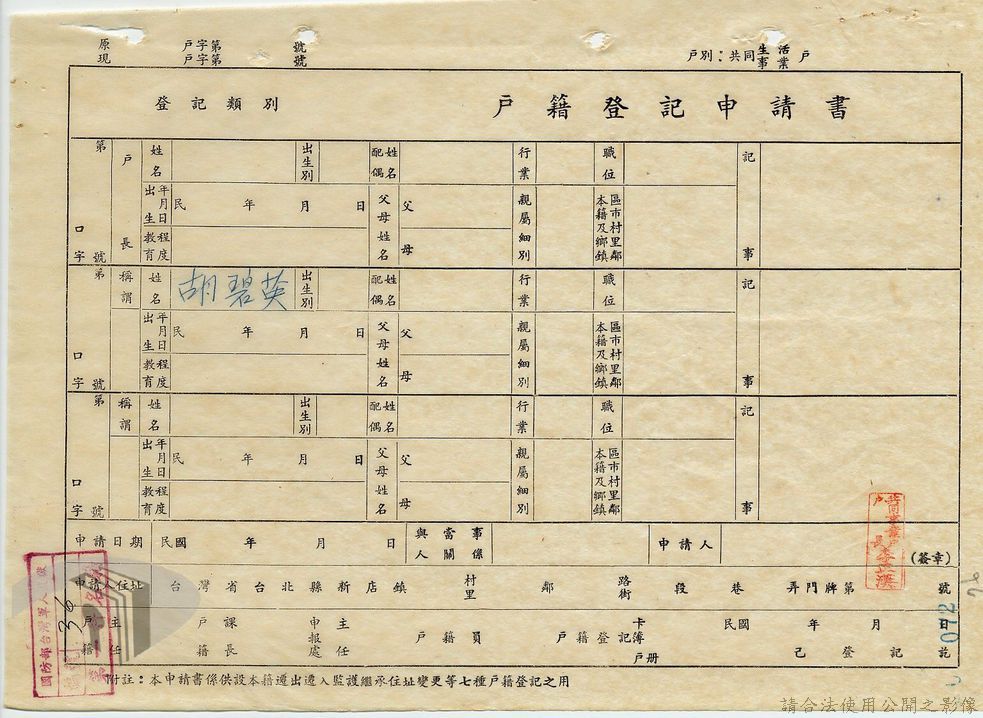 原 戶字第 號
現 戶字第 號
戶別：共同生活事業戶
登記類別
戶籍登記申請書
第 口字 號
戶長
姓名 出生別 配偶姓名 行業 職位 記事
出生年月日 民 年 月 日 父母姓名 父 母 親屬細別 本籍及鄉鎮區市村里鄰
教育程度
第 口字 號
稱謂
姓名 胡碧英 出生別 配偶姓名 行業 職位 記事
出生年月日 民 年 月 日 父母姓名 父 母 親屬細別 本籍及鄉鎮區市村里鄰
教育程度
第 口字 號
稱謂
姓名 出生別 配偶姓名 行業 職位 記事
出生年月日 民 年 月 日 父母姓名 父 母 親屬細別 本籍及鄉鎮區市村里鄰
教育程度
申請日期 民國 年 月 日 與當事人關係 申請人 (簽章)
共同事業戶戶長
申請人住址 台灣省台北縣新店鎮 村里 鄰 路街 段 巷 弄門牌第 號
戶籍主任 戶籍課長 申報處主任 戶籍員 戶籍登記卡簿戶册 民國 年 月 日 已登記訖
072
36
附註：本申請書係供設本籍遷出遷入監護繼承住址變更等七種戶籍登記之用
請合法使用公開之影像